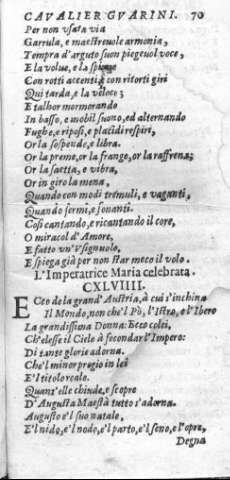 CAVALIER GVARINI. 70
Per non vsata via
Garrula, e maestreuole armonia,
Tempra d'arguto suon pieghevol voce,
E la volue, e la spigne
Con rotti accenti, e con ritorti giri
Qui tarda, e là veloce;
E talhor mormorando
In basso, e mobil suono, ed alternando
Fughe, e riposi, e placidi respiri,
Or la sospende, e libra.
Or la preme, or la frange, or la raffrena;
Or la saetta, e vibra,
Or in giro la mena,
Quando con modi tremuli, e vaganti,
Quando fermi, e sonanti.
Così cantando, e ricantando il core,
O miracol d'Amore,
E fatto vn' Vsignuolo,
E spiega già per non star meco il volo.
L'Imperatrice Maria celebrata.
CXLVIIII.
ECco de la grand'Austria, à cui s'inchina
Il Mondo, non che'l Pò, l'Istro, e l'Ibero
La grandissima Donna: Ecco colei,
Ch'elesse il Cielo à fecondar l'Impero:
Di tante glorie adorna.
Che'l minor pregio in lei
E'l titolo reale.
Quanz'elle chiude, e scopre
D'Augusta Maestà tutto s'adorna.
Augusto e'l suo natale,
E'l nido, e'l nodo, e'l parto, e'l seno, e l'opre,
Degna